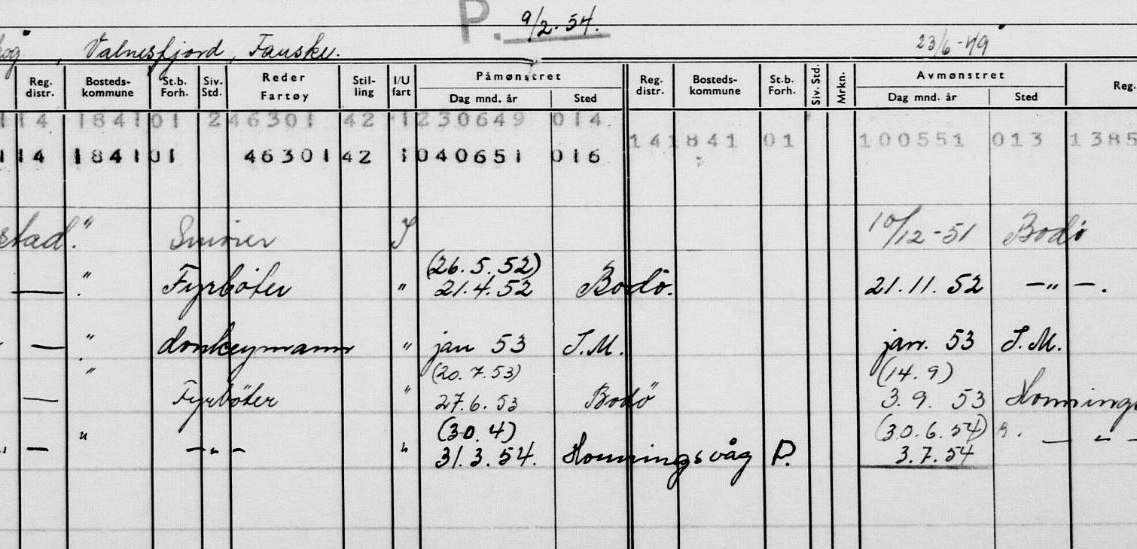 P. 9/2-54.
Valnesfjord, Fauske. 23/6-49
Reg. distr. Bosteds-kommune St.b. Forh. Siv. Std. Reder Fartøy Stil-ling I/U fart Påmønstret Reg. distr. Bosteds-kommune St.b. Forh. Siv. Std. Mrkn. Avmønstret Reg.
Dag mnd. år Sted Dag mnd. år Sted
114 1841 01 2 46301 42 1 230649 014
14 1841 01 100551 013 1385
114 1841 01 46301 42 1 040651 016
stad. " Smører I 10/12-51 Bodö
(26.5.52)
— " Fyrböter " 21.4.52 Bodö. 21.11.52 —"—.
" — " donkeymann " jan 53 S.M. jan. 53 S.M.
" (20.7.53) (14.9)
— Fyrböter " 27.6.53 Bodö 3.9.53 Honnings
(30.4) (30.6.54)
" — " —"— " 31.3.54. Honningsvåg P. 3.7.54 — " —